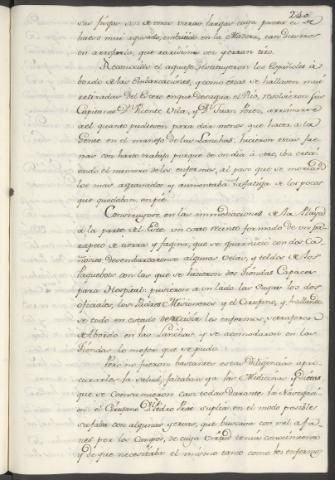 240
ser fuese
hacese mui aguada, embutido en la Madera,
en arreglarlo, que
Reconocido el aguage restituyeron los Españoles à
bordo de las Embarcaciones, y como estas se hallaven mui
retiradas del Estero en que desagua el Rio, resolvieron sus
Capitanes Dn. Vicente Vila, y Dn. Juan Perez, arrimarse
a el quanto pudiesen para dar menos que hacer a la
Gente en el manejo de las Lanchas: hicieron estas fae-
nas con harto trabajo porque de un dia à otro, iba crecien-
do el numero de los enfermos, al paso que se morian
los mas agravados y aumentaba la fatiga de los pocos
que quedaban en pie.
Construyose en las inmediaciones de la Playa
à la parte del Este un corto recinto formado de un pa-
rapeto de tierra y fagina, que se guarneció con dos Ca-
ñones: desembarcaronse algunas velas, y toldos de los
Paquebotes con las que se hicieron dos Tiendas capaces
para Hospital; pusieron à un lado las suyas los dos
oficiales, los Padres Misioneros y el Cirujano, y hallando-
se todo en estado de recivir los enfermos, se trajeron
de Abordo en las Lanchas y se acomodaron en las
Tiendas lo mejor que se pudo.
Pero no fueron bastantes estas diligencias à pro-
curarles la salud, faltaban ya las Medicinas y Dietas
que se consumieron casi todas durante la Navegaci-
on: el Cirujano Dn. Pedro Prat suplia en el modo posible
su falta con algunas yervas, que buscaba con mil afa-
nes por los Campos, de cuya virtud tenia conocimiento
y de que necesitaba el mismo tanto como los enfermos